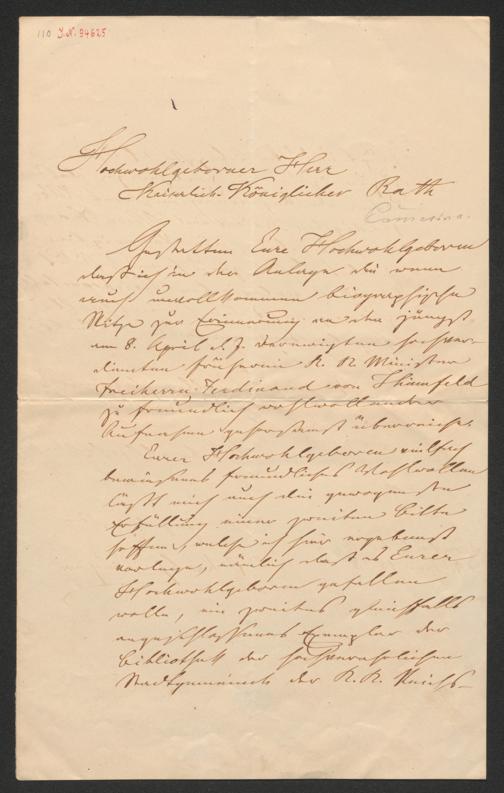 110 J.N. 94625
Hochwohlgeborner Herr
Kaiserlich-Königlicher Rath
Gestatten Eure Hochwohlgeboren
daß ich in der Anlage die wenn
auch unvollkommene biographische
Skitze zur Erinnerung an den jüngst
am 8. April d. J. verewigten hochver-
dienten früheren K. K. Minister
Freiherrn Ferdinand von Thinnfeld
zu freundlich wohlwollender
Aufnahme gehorsamst überreiche.
Eurer Hochwohlgeboren vielfach
bewiesenes freundliches Wohlwollen
läßt mich auch die geneigte
Erfüllung einer zweiten Bitte
hoffen, welche ich hier ergebenst
vorlege, nämlich daß es Eurer
Hochwohlgeboren gefallen
wolle, ein zweites gleichfalls
angeschlossenes Exemplar der
Bibliothek der hochverehrlichen
Stadtgemeinde der K. K. Reichs-